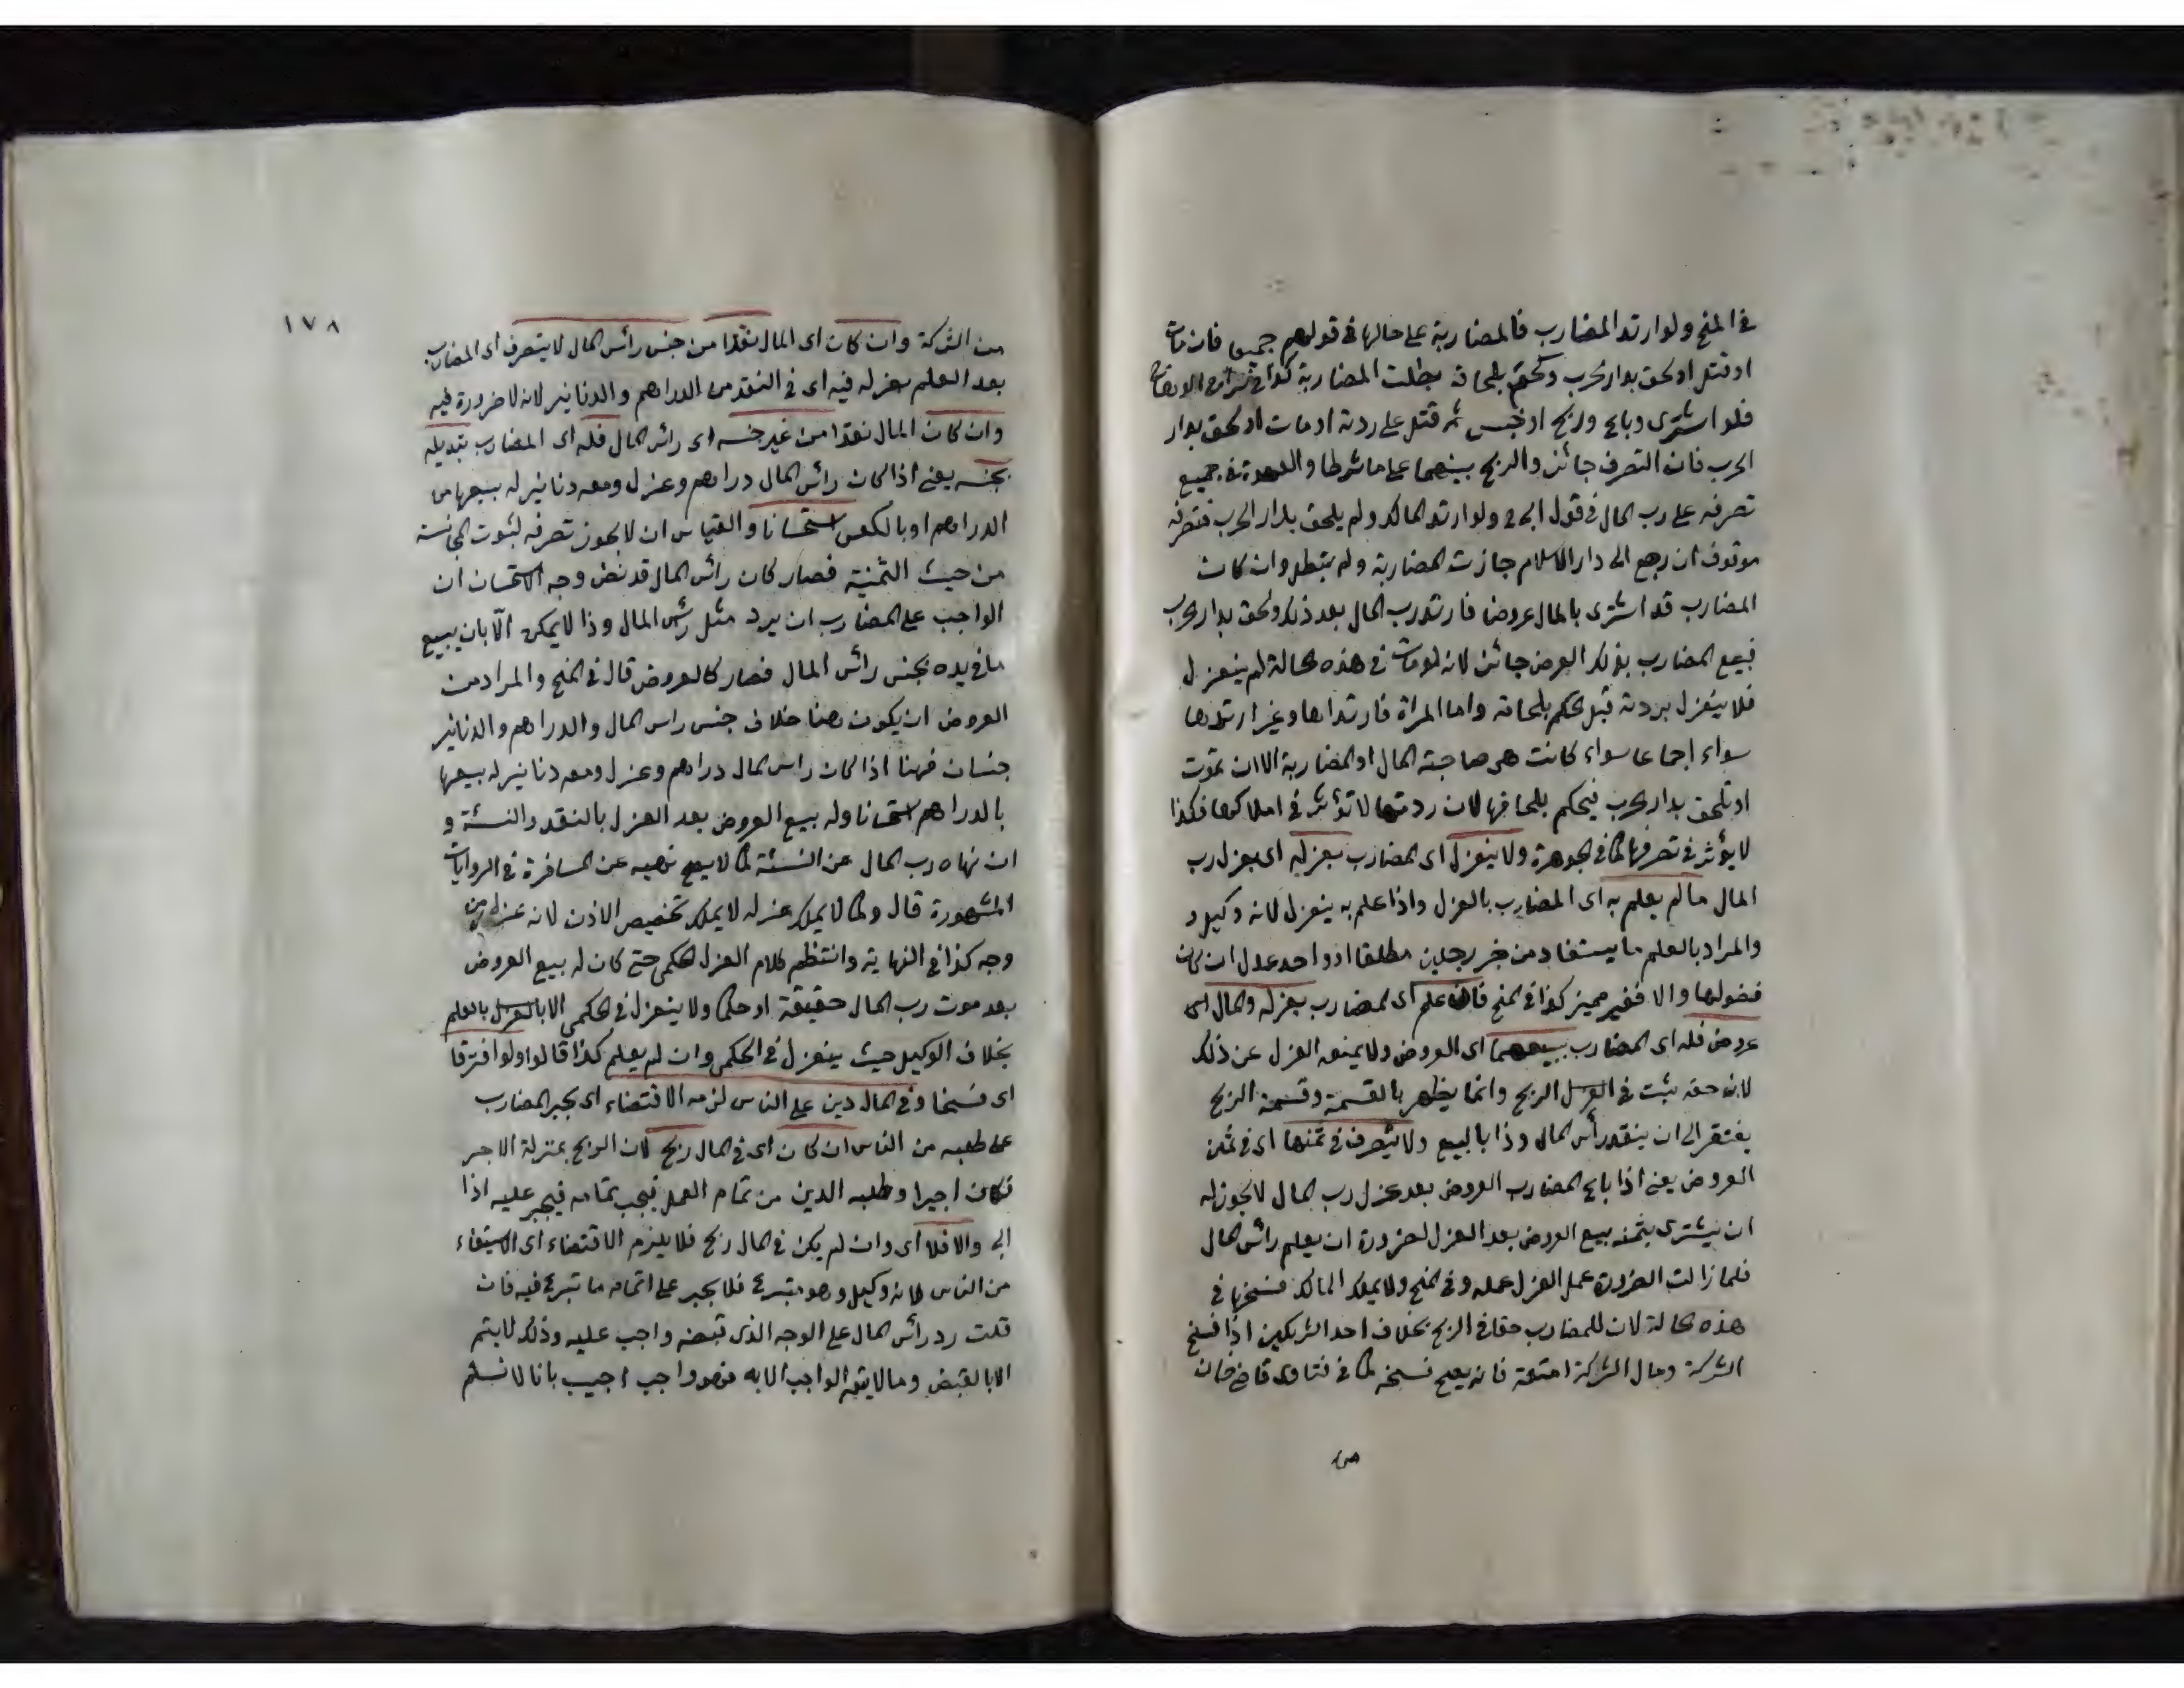 في المنح ولو ارتد المضارب فالمضاربة على حالها في قولهم جميعا فان مات
او قتل او لحق بدار الحرب وحكم بلحاقه بطلت المضاربة كذا في
فلو اشترى وباع وربح او خسر ثم قتل على ردته او مات او لحق بدار
الحرب فان التصرف جائز والربح بينهما على ما شرطا والعهدة في جميع
تصرفه على رب المال في قول ابي ح ولو ارتد المالك ولم يلحق بدار الحرب فتصرفه
موقوف ان رجع الى دار الاسلام جازت المضاربة ولم تبطل وان كان
المضارب قد اشترى بالمال عروضا فارتد رب المال بعد ذلك ولحق بدار الحرب
فبيع المضارب بذلك العرض جائز لانه لو مات في هذه الحالة لم ينعزل
فلا ينعزل بردته قبل الحكم بلحاقه واما المراة فارتدادها وغير ارتدادها
سواء اجماعا سواء كانت هى صاحبة المال او المضاربة الا ان تموت
او تلحق بدار الحرب فيحكم بلحاقها لان ردتها لا تؤثر في املاكها فكذا
لا يؤثر في تصرفها كما في الجوهرة ولا ينعزل اى المضارب بعزله اى بعزل رب
المال ما لم يعلم به اى المضارب بالعزل واذا علم به ينعزل لانه وكيل و
والمراد بالعلم ما يستفاد من خبر رجلين مطلقا او واحد عدل ان كان
فضوليا والا فغير مميز كذا في المنح فان علم اى المضارب بعزله والمال اى
عروض فله اى المضارب بيعها اى العروض ولا يمنعه العزل عن ذلك
لان حقه ثبت في الربح وانما يظهر بالقسمة وقسمة الربح
يفتقر الى ان ينقد رأس المال وذا بالبيع ولا يتصرف في ثمنها اى في ثمن
العروض يعنى اذا باع المضارب العروض بعد عزل رب المال لا يجوز له
ان يشترى بثمنه بيع العروض بعد العزل لضرورة ان يعلم رأس المال
فلما زالت الضرورة عمل العزل عمله وفي المنح ولا يملك المالك فسخها في
هذه الحالة لان للمضارب حقا في الربح بخلاف احد الشريكين اذا فسخ
الشركة ومال الشركة امتعة فانه يصح فسخه كما في فتاوى قاضي خان
من
١٧٨
من الشركة وان كان اى المال نقدا من جنس رأس المال لا يتصرف اى المضارب
بعد العلم بعزله فيه اى في النقد من الدراهم والدنانير لانه لا ضرورة فيه
وان كان المال نقدا من غير جنسه اى رأس المال فله اى المضارب تبديله
بجنسه يعنى اذا كان رأس المال دراهم وعزل ومعه دنانير له بيعها من
الدراهم او بالعكس استحسانا والقياس ان لا يجوز تصرفه لثبوت المجانسة
من حيث الثمنية فصار كان رأس المال قد نض وجه الاستحسان ان
الواجب على المضارب ان يرد مثل رأس المال وذا لا يمكن الا بان يبيع
ما في يده بجنس رأس المال فصار كالعروض قال في المنح والمراد من
العروض ان يكون هنا خلاف جنس راس المال والدراهم والدنانير
جنسان فهنا اذا كان راس المال دراهم وعزل ومعه دنانير له بيعها
بالدراهم استحسانا وله بيع العروض بعد العزل بالنقد والنسئة و
ان نهاه رب المال عن النسئة كما لا يصح نهيه عن المسافرة في الروايات
المشهورة قال وكما لا يملك عزله لا يملك تخصيص الاذن لانه عزل من
وجه كذا في النهاية وانتظم كلام العزل الحكمى حتى كان له بيع العروض
بعد موت رب المال حقيقة او حكما ولا ينعزل في الحكمى الا بالعلم
بخلاف الوكيل حيث ينعزل في الحكمى وان لم يعلم كذا قالوا ولو افترقا
اى فسخا وفي المال دين على الناس لزمه الاقتضاء اى يجبر المضارب
على طلبه من الناس ان كان اى في المال ربح لان الربح بمنزلة الاجر
فكان اجيرا وطلبه الدين من تمام العمل فيجب تمامه فيجبر عليه اذا
ابى والا فلا اى وان لم يكن في المال ربح فلا يلزم الاقتضاء اى الاستيفاء
من الناس لانه وكيل وهو متبرع فلا يجبر على اتمام ما تبرع فيه فان
قلت رد رأس المال على الوجه الذى قبضه واجب عليه وذلك لا يتم
الا بالقبض وما لا يتم الواجب الا به فهو واجب اجيب بانا لا نسلم